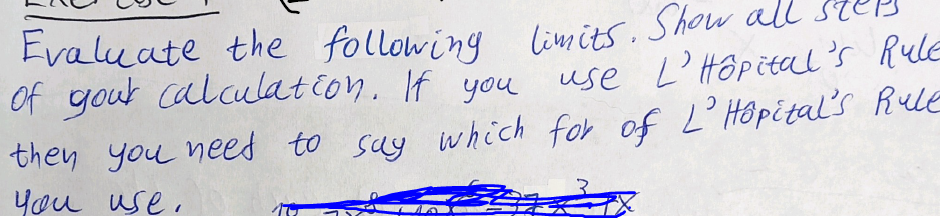 Evaluate the following limits. Show all steps
of your calculation. If you use L'Hôpital's Rule
then you need to say which for of L'Hôpital's Rule
you use.